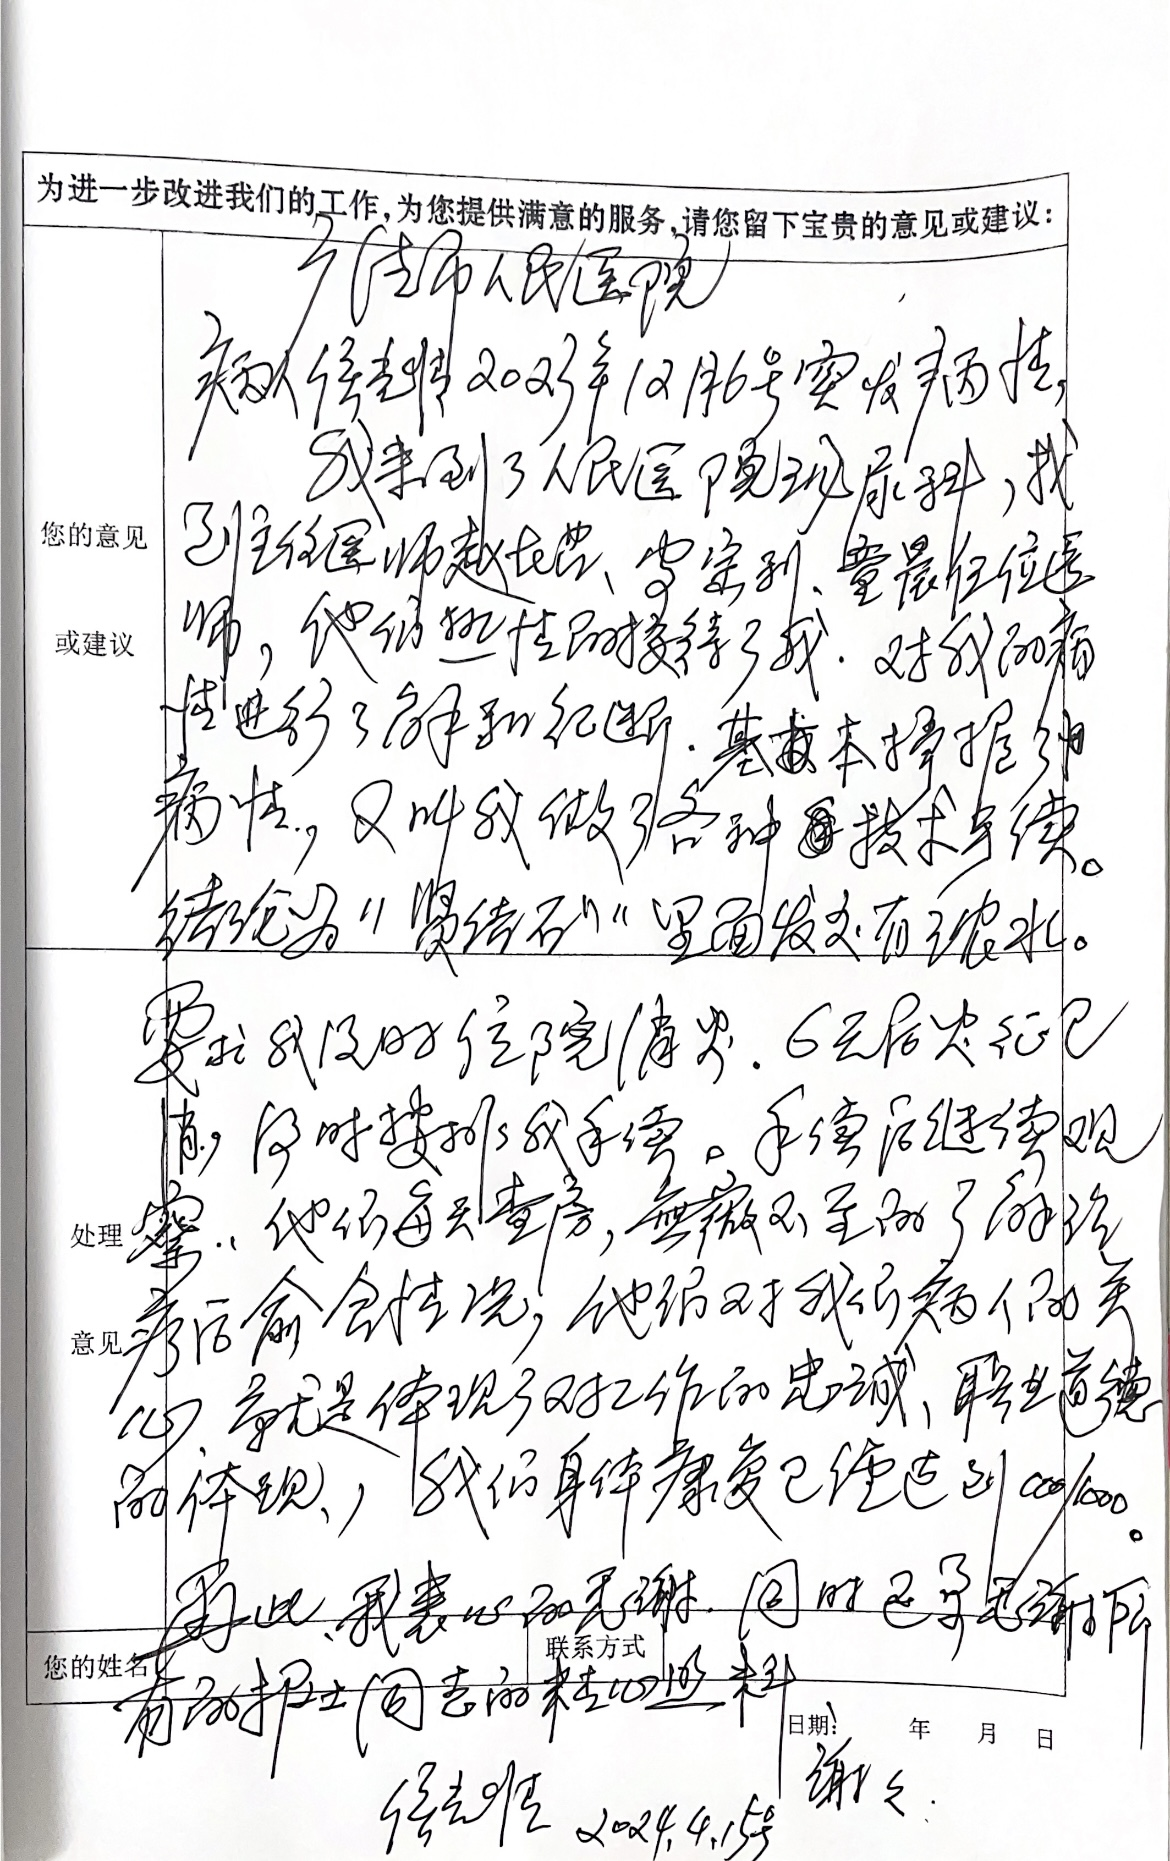 为进一步改进我们的工作,为您提供满意的服务,请您留下宝贵的意见或建议:
市人民医院
病人侯 2023年12月6号突发病情,
我来到了人民医院 尿科,找
您的意见
到主任医师赵 、 、童晨 位医
或建议
师,他们热情的接待了我.对我的病
情进行了解和 断.基本掌握
病情.,又叫我做了各种技术手续。
结论为"肾结石"里面发炎有浓水。
要求我及时住院消炎.6天后炎征已
消,及时安排我手术。手术后继续观
处理
察.,他们每天查房,無微不至的了解治
意见
疗后俞合情况,他们对我们病人的关
心、就是体现了对工作的忠诚、职业道德
的体现、,我们身体康复已经达到 /1000。
为此、我衷心的感谢.同时还要感谢所
您的姓名
联系方式
有的护士同志的精心照料
日期: 年 月 日
谢谢.
侯 2024.4.15号